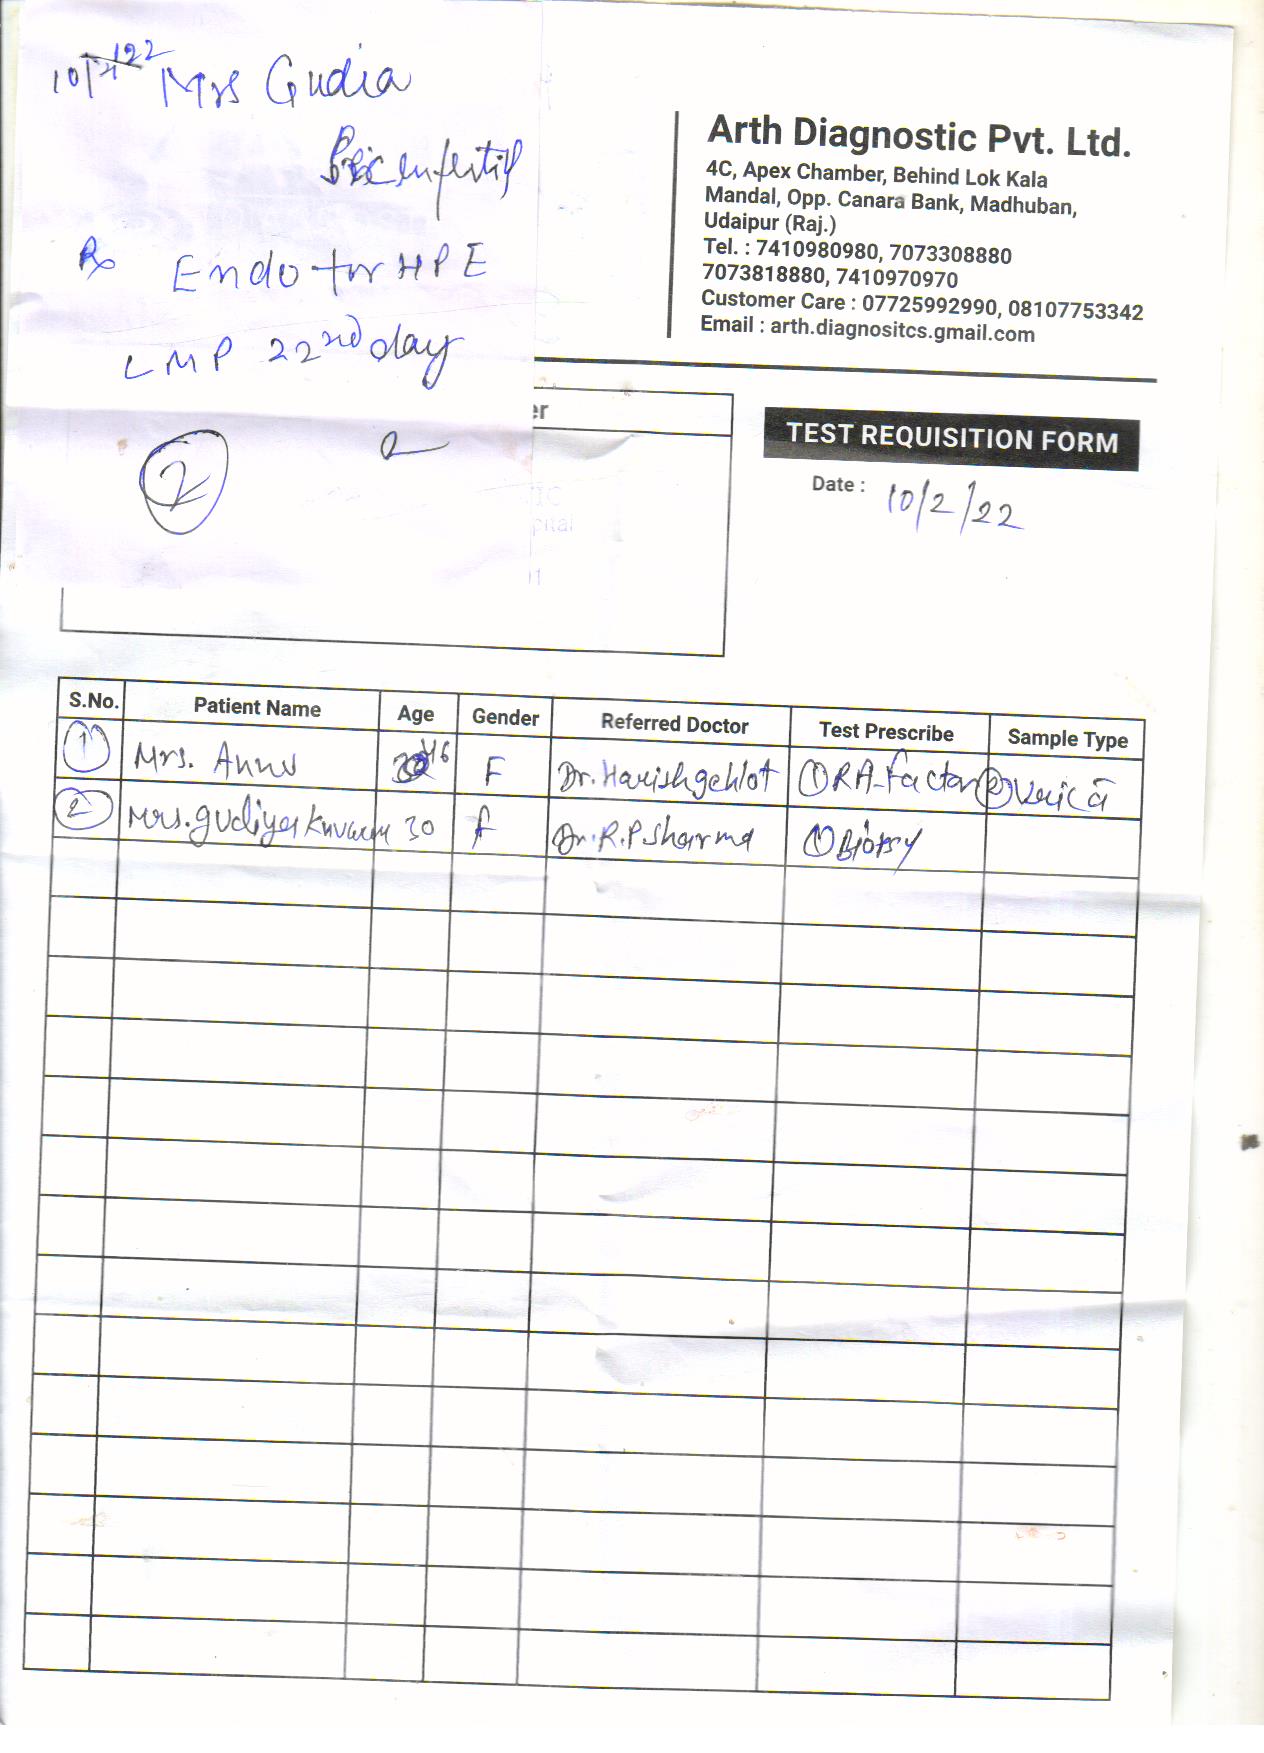 Mrs Gudia
Rx Endo for HPE
LMP 22nd day
2
Arth Diagnostic Pvt. Ltd.
4C, Apex Chamber, Behind Lok Kala
Mandal, Opp. Canara Bank, Madhuban,
Udaipur (Raj.)
Tel. : 7410980980, 7073308880
7073818880, 7410970970
Customer Care : 07725992990, 08107753342
Email : arth.diagnositcs.gmail.com
er
TEST REQUISITION FORM
Date : 10/2/22
S.No. Patient Name Age Gender Referred Doctor Test Prescribe Sample Type
1 Mrs. Annu 46 F Dr. Harish gehlot 1 RA-Factor 2
2 Mrs. gudiya 30 F Dr. R.P Sharma 1